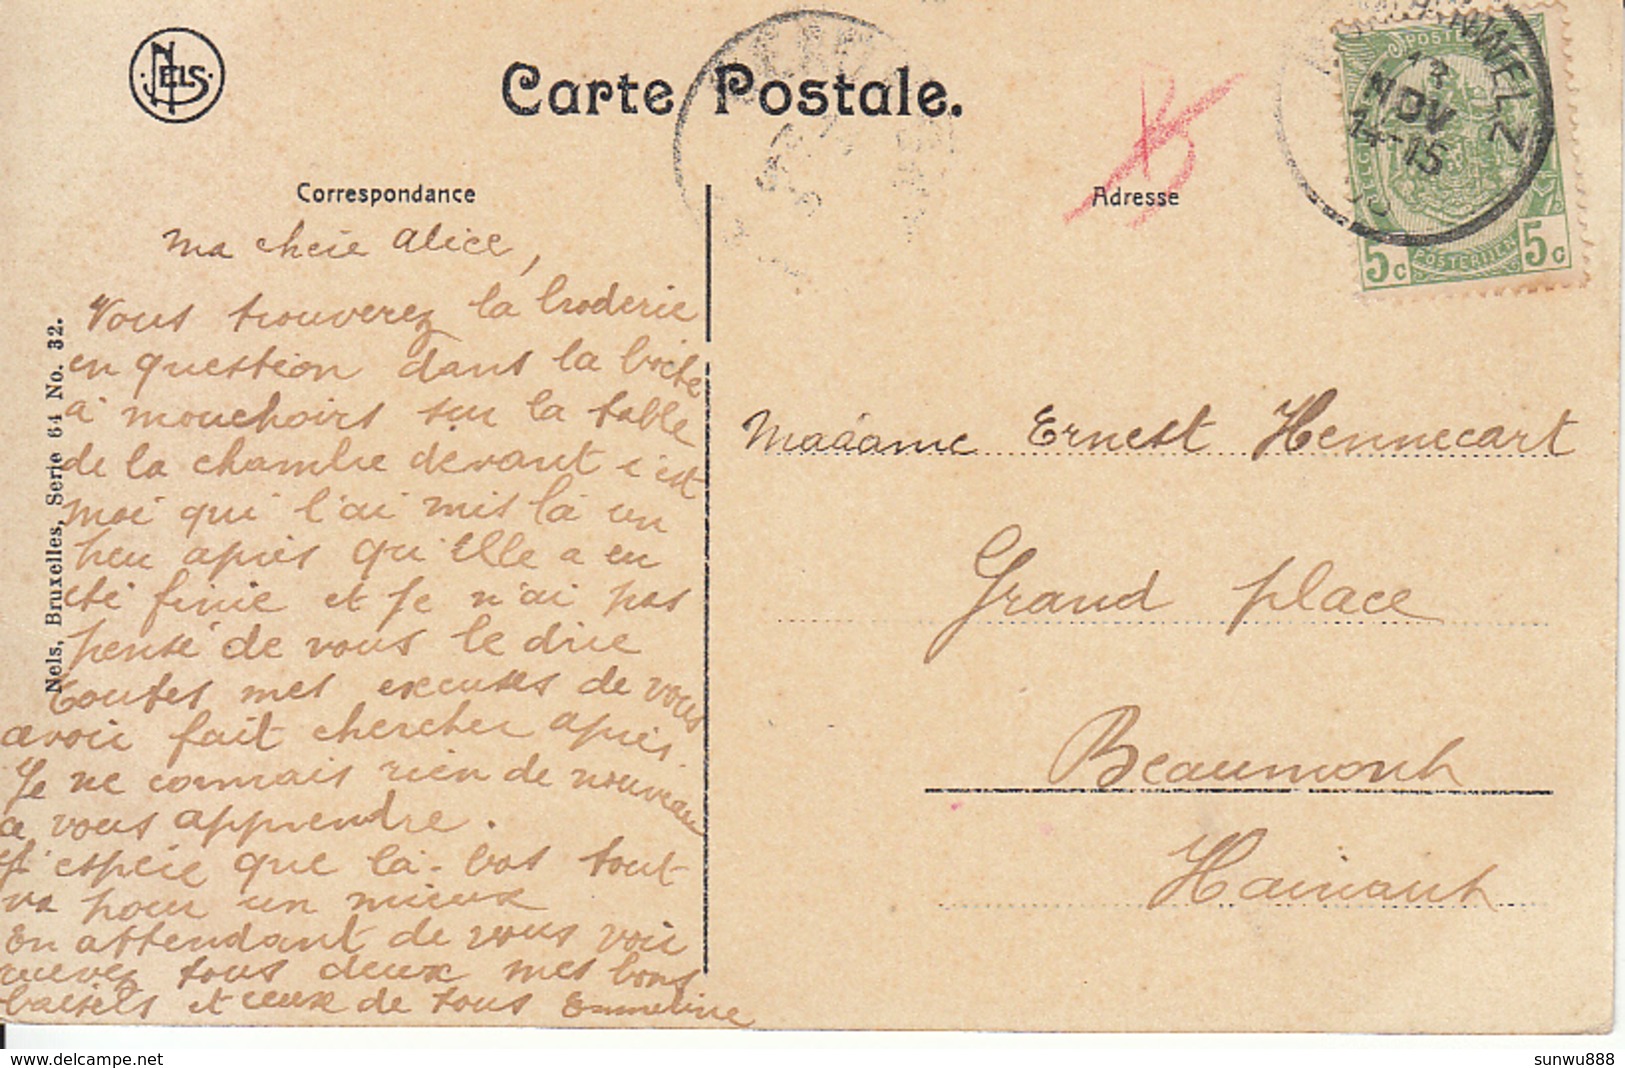 NELS
Carte Postale.
Correspondance
Adresse
WELZ
13
NOV
14-15
POSTE
BELG
POSTERIJEN
5c 5c
Nels, Bruxelles, Serie 64 No. 32.
Ma chère Alice,
Vous trouverez la broderie
en question dans la boîte
à mouchoirs sur la table
de la chambre devant c'est
moi qui l'ai mis là un
peu après qu'Elle a eu
été finie et je n'ai pas
pensé de vous le dire
Toutes mes excuses de vous
avoir fait chercher après
Je ne connais rien de nouveau
à vous apprendre.
J'espère que là-bas tout
va pour un mieux
En attendant de vous voir
recevez tous deux mes bons
baisers et ceux de tous Emmeline
Madame Ernest Hennecart
Grand place
Beaumont
Hainaut
delcampe.net
sunwu888